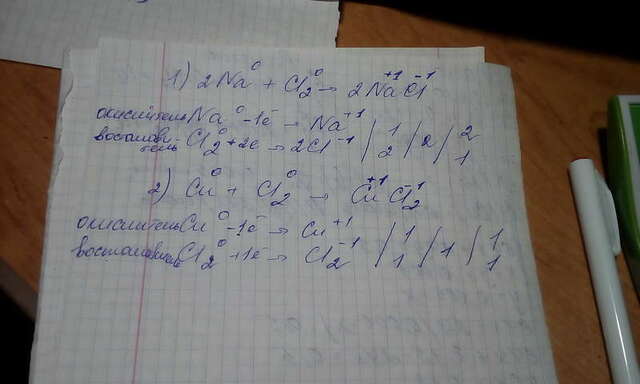 1) 2Na⁰ + Cl₂⁰ → 2Na⁺¹Cl⁻¹
окислитель Na⁰ -1e → Na⁺¹ | 1 | 2 | 2
восстановитель Cl₂⁰ +2e → 2Cl⁻¹ | 2 | | 1
2) Cu⁰ + Cl₂⁰ → Cu⁺¹Cl₂⁻¹
окислитель Cu⁰ -1e → Cu⁺¹ | 1 | 1 | 1
Cl₂⁰ +1e → Cl₂⁻¹ | 1 | | 1